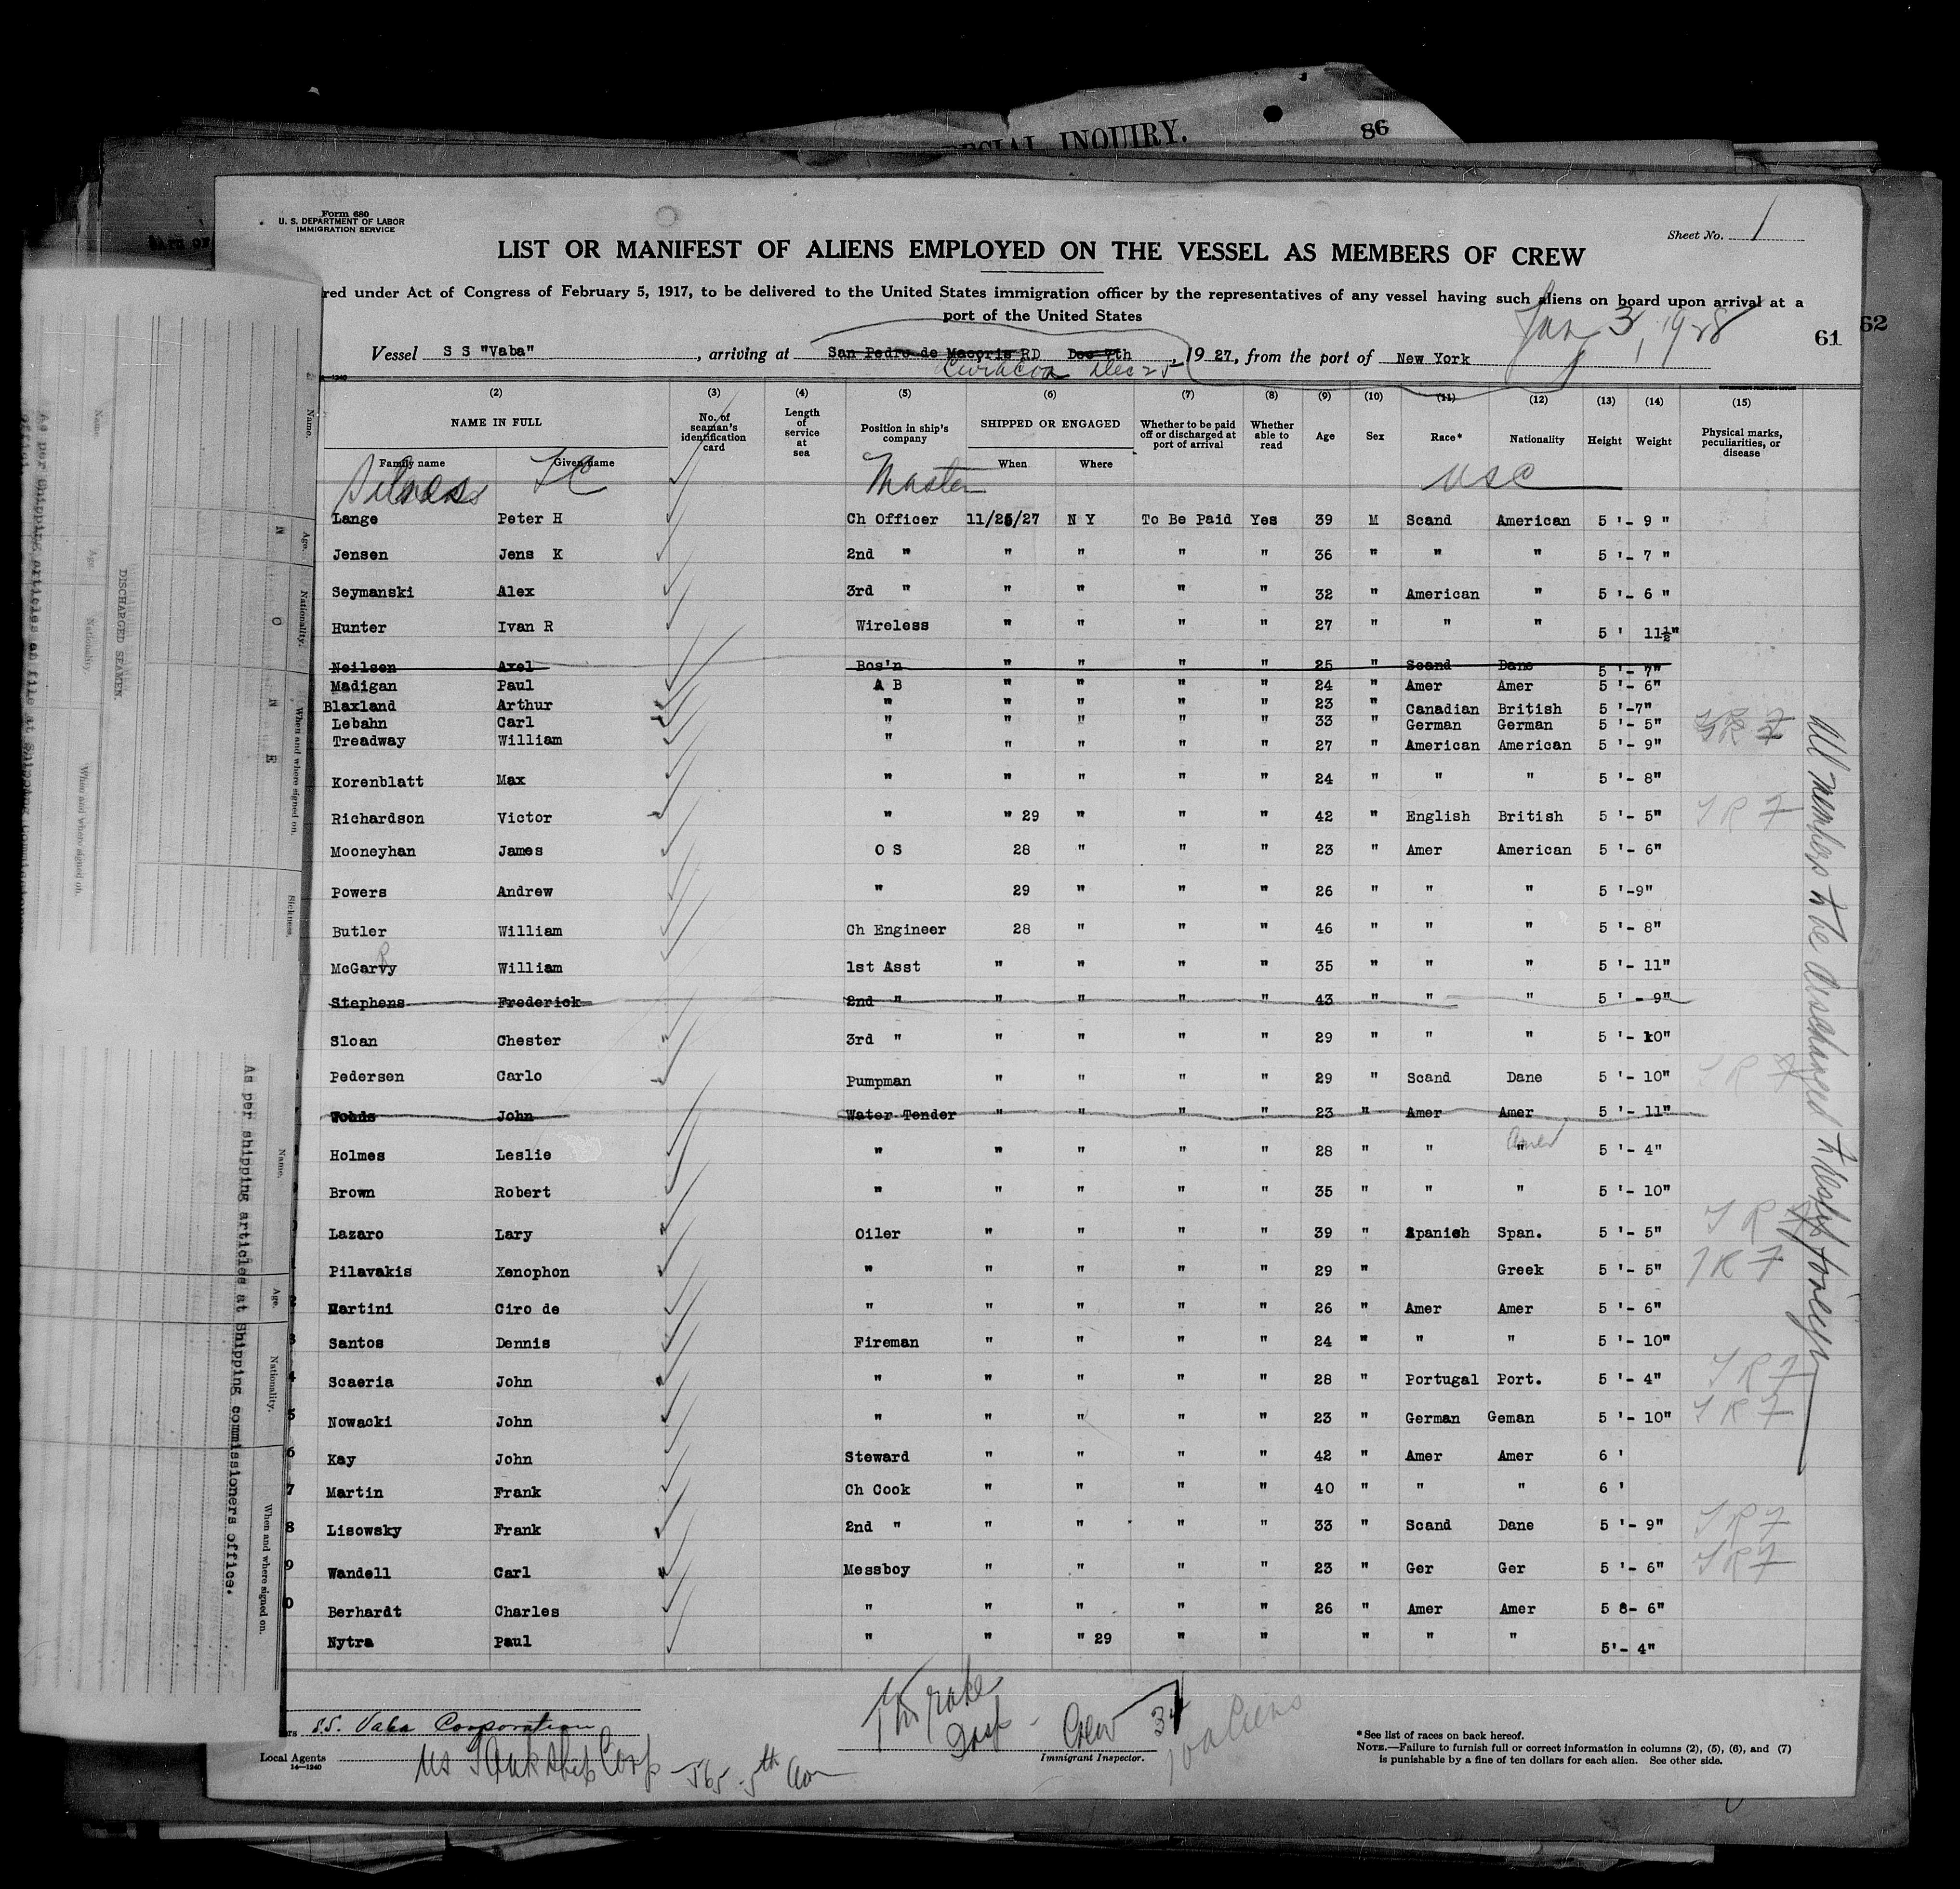 SPECIAL INQUIRY.
86
62
61
Form 680
U. S. DEPARTMENT OF LABOR
IMMIGRATION SERVICE
Sheet No. 1
LIST OR MANIFEST OF ALIENS EMPLOYED ON THE VESSEL AS MEMBERS OF CREW
red under Act of Congress of February 5, 1917, to be delivered to the United States immigration officer by the representatives of any vessel having such aliens on board upon arrival at a
port of the United States
Jan 3, 1928
Vessel S S "Vaba", arriving at San Pedro de Macoris RD Dec 7th, 1927, from the port of New York
Curacoa Dec 25
(2) (3) (4) (5) (6) (7) (8) (9) (10) (11) (12) (13) (14) (15)
NAME IN FULL
Family name Given name
No. of seaman's identification card
Length of service at sea
Position in ship's company
SHIPPED OR ENGAGED
When Where
Whether to be paid off or discharged at port of arrival
Whether able to read
Age
Sex
Race*
Nationality
Height
Weight
Physical marks, peculiarities, or disease
Master USC
Lange Peter H Ch Officer 11/25/27 N Y To Be Paid Yes 39 M Scand American 5 '- 9 "
Jensen Jens K 2nd " " " " " 36 " " " 5 '- 7 "
Seymanski Alex 3rd " " " " " 32 " American " 5 '- 6 "
Hunter Ivan R Wireless " " " " 27 " " " 5 ' 11½"
Neilsen Axel Bos'n " " " " 25 " Scand Dane 5 '- 7"
Madigan Paul A B " " " " 24 " Amer Amer 5 '- 6"
Blaxland Arthur " " " " " 23 " Canadian British 5 '-7"
Lebahn Carl " " " " " 33 " German German 5 '- 5"
Treadway William " " " " " 27 " American American 5 '- 9"
Korenblatt Max " " " " " 24 " " " 5 '- 8"
Richardson Victor " " 29 " " " 42 " English British 5 '- 5"
Mooneyhan James O S 28 " " " 23 " Amer American 5 '- 6"
Powers Andrew " 29 " " " 26 " " " 5 '-9"
Butler William Ch Engineer 28 " " " 46 " " " 5 '- 8"
McGarvy William 1st Asst " " " " 35 " " " 5 '- 11"
Stephens Frederick 2nd " " " " " 43 " " " 5 ' - 9"
Sloan Chester 3rd " " " " " 29 " " " 5 '- 10"
Pedersen Carlo Pumpman " " " " 29 " Scand Dane 5 '- 10"
Woods John Water Tender " " " " 23 " Amer Amer 5 '- 11"
Holmes Leslie " " " " " 28 " " " Amer 5 '- 4"
Brown Robert " " " " " 35 " " " 5 '- 10"
Lazaro Lary Oiler " " " " 39 " Spanish Span. 5 '- 5"
Pilavakis Xenophon " " " " " 29 " Greek 5 '- 5"
Martini Ciro de " " " " " 26 " Amer Amer 5 '- 6"
Santos Dennis Fireman " " " " 24 " " " 5 '- 10"
Scaeria John " " " " " 28 " Portugal Port. 5 '- 4"
Nowacki John " " " " " 23 " German Geman 5 '- 10"
Kay John Steward " " " " 42 " Amer Amer 6 '
Martin Frank Ch Cook " " " " 40 " " " 6 '
Lisowsky Frank 2nd " " " " " 33 " Scand Dane 5 '- 9"
Wandell Carl Messboy " " " " 23 " Ger Ger 5 '- 6"
Berhardt Charles " " " " " 26 " Amer Amer 5 8- 6"
Nytra Paul " " " 29 " " " " " 5'- 4"
All members to be discharged
S.S. Vaba Corporation
Local Agents US Tankship Corp - 565 - 5th Ave
14—1240
Insp - Crew 34
10 aliens
Immigrant Inspector.
*See list of races on back hereof.
NOTE.—Failure to furnish full or correct information in columns (2), (5), (6), and (7)
is punishable by a fine of ten dollars for each alien. See other side.
DISCHARGED SEAMEN.
Name. Age. Nationality. When and where signed on. Sickness.
N O N E
As per shipping articles at Shipping commissioners office.
Name. Age. Nationality. When and where signed on.